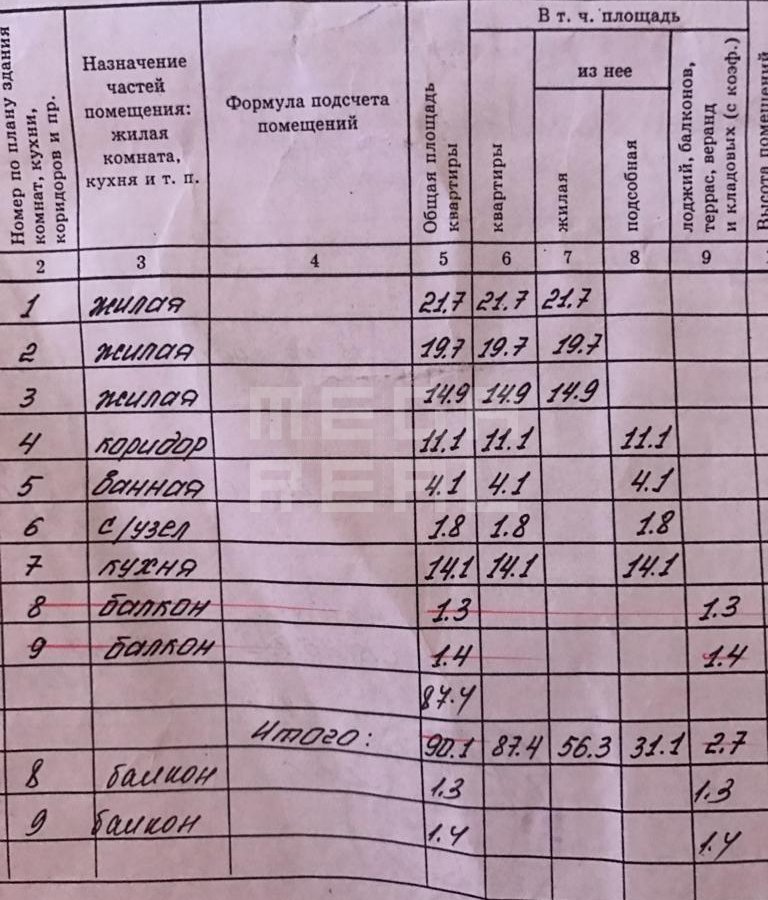 В т. ч. площадь
из нее
Номер по плану здания
комнат, кухни,
коридоров и пр.
Назначение
частей
помещения:
жилая
комната,
кухня и т. п.
Формула подсчета
помещений
Общая площадь
квартиры
квартиры
жилая
подсобная
лоджий, балконов,
террас, веранд
и кладовых (с коэф.)
Высота помещений
2 3 4 5 6 7 8 9
1 жилая 21,7 21.7 21.7
2 жилая 19.7 19.7 19.7
3 жилая 14.9 14.9 14.9
4 коридор 11.1 11.1 11.1
5 ванная 4.1 4.1 4.1
6 с/узел 1.8 1.8 1.8
7 кухня 14.1 14.1 14.1
8 балкон 1.3 1.3
9 балкон 1.4 1.4
87.4
Итого: 90.1 87.4 56.3 31.1 2.7
8 балкон 1.3 1.3
9 балкон 1.4 1.4
MEGA
REAL